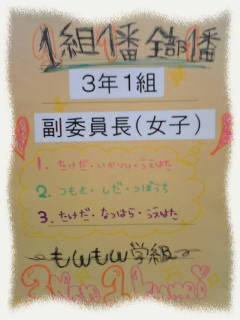 1組1番 全部1番
3年1組
副委員長(女子)
1. たけだ・いかりい・うえはた
2. つもと・しだ・つぼうち
3. たけだ・なつはら・うえはた
〜もwもw学組〜
3nen 1kumi